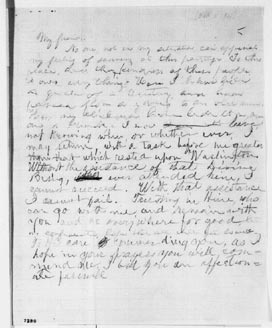 My friends
No one not in my situation can appreciate
my feeling of sadness at this parting. To this
place, and the kindness of these people
I owe every thing. Here I have lived
a quarter of a century, and have
passed from a young to an old man.
Here my children have been born and
one is buried. I now leave,
not knowing when, or whether ever, I
may return, with a task before me greater
than that which rested upon Washington.
Without the assistance of that Divine
Being, ever attended him, I
cannot succeed. With that assistance
I cannot fail. Trusting in Him, who
can go with me, and remain with
you and be every where for good let
us confidently hope that all will yet be well
To His care commending you, as I
hope in your prayers you will com-
mend me, I bid you an affection-
ate farewell